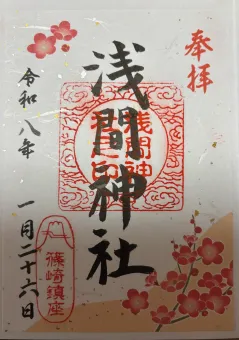 奉拝
浅間神社
令和八年
一月二十六日
篠崎鎮座